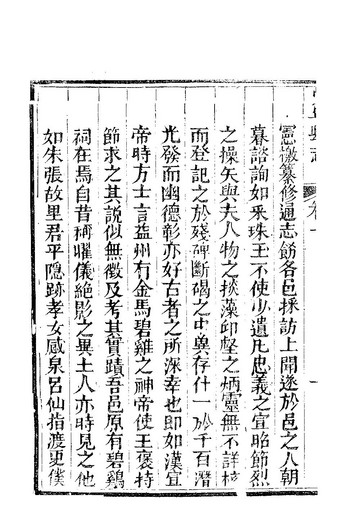 憲檄纂修通志飭各邑採訪上聞遂於邑之人朝
暮諮詢如采珠玉不使少遺凡忠義之宜昭節烈
之操矢與夫人物之掞藻印壑之炳靈無不詳核
而登記之於殘碑斷碣之中與存什一於千百潛
光發而幽德彰亦好古者之所深幸也即如漢宣
帝時方士言益州有金馬碧雞之神帝使王褒持
節求之其說似無徵及考其實蹟吾邑原有碧鷄
祠在焉自昔稱曜儀絕影之異土人亦時見之他
如朱張故里君平隱跡孝女感泉呂仙指渡更僕